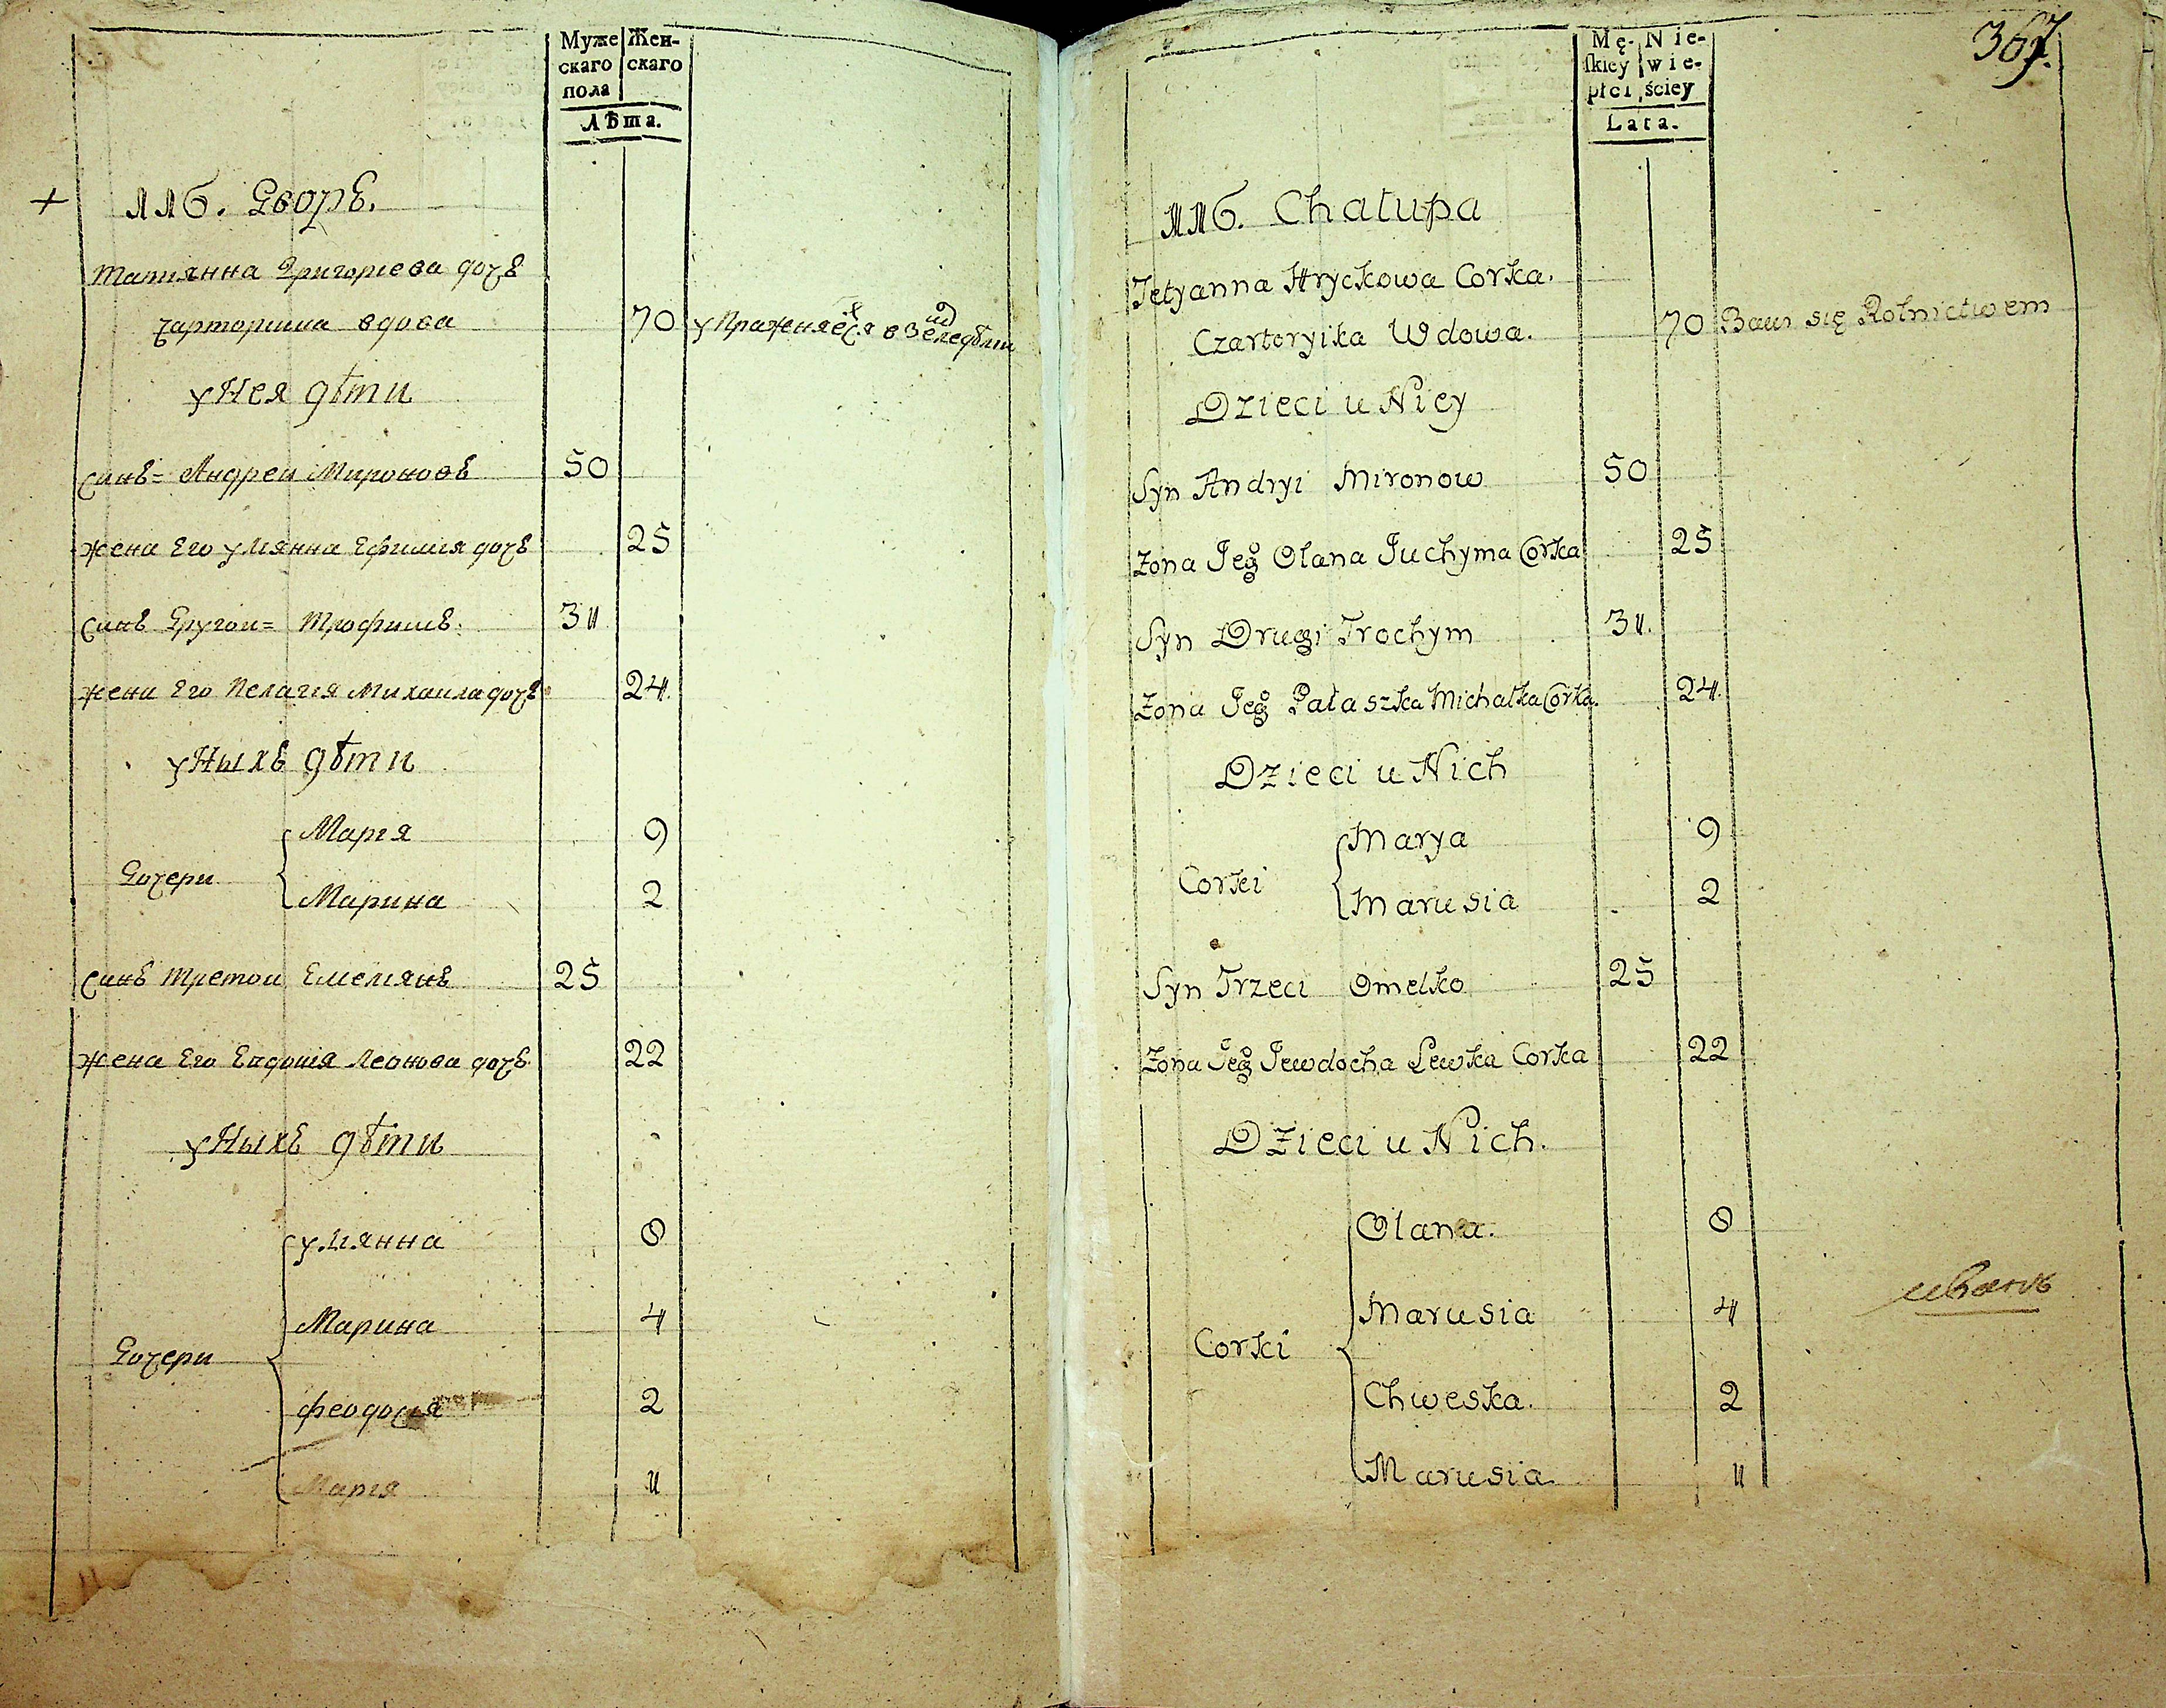 Муже Жен-
скаго скаго
пола
Лѣта.
+ 116. Дворъ.
Татянна Григориева дочъ
Чарторыина вдова 70 упражняеся в Зеледѣлии
у Нея дѣти
Синъ= Андреи Мироновъ 50
жена Его Улиянна Ефимия дочъ 25
Синъ Другои= Трофимъ. 31
жена Его Пелагия Михаила дочъ 24.
у Ныхъ дѣти
Дочери
Мария 9
Марина 2
Синъ Третои Емелиянъ 25
жена Его Евдошия Леонова дочъ 22
у Ныхъ дѣти
Дочери
Улиянна 8
Марина 4
Феодосия 2
Мария 1
367.
Mę- Nie-
ſkiey wie-
płci ściey
Lata.
116. Chałupa
Tetyanna Hryckowa Corka.
Czartoryika Wdowa. 70 Bawi się Rolnictwem
Dzieci u Niey
Syn Andryi Mironow 50
Zona Jego Olana Juchyma Corka 25
Syn Drugi Trochym 31.
Zona Jego Pałaszka Michałka Corka. 24.
Dzieci u Nich
Corki
Marya 9
Marusia 2
Syn Trzeci Omelko 25
Zona Jego Jewdocha Lewka Corka 22
Dzieci u Nich.
Corki
Olana. 8
Marusia 4
Chweska. 2
Marusia 1